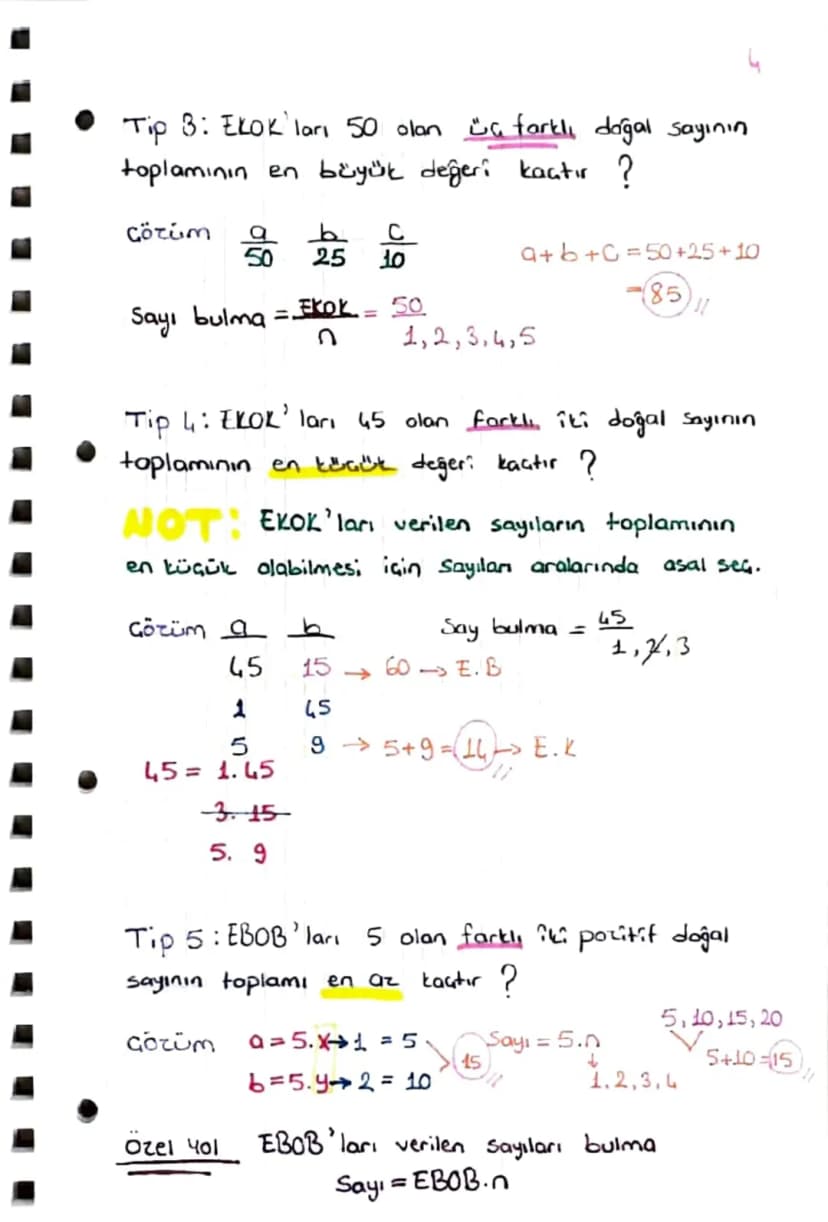 4
Tip 3: EKOK'ları 50 olan üç farklı doğal sayının
toplamının en büyük değeri kaçtır ?
Çözüm a/50 b/25 c/10
a+b+c = 50+25+10
= 85
Sayı bulma = EKOK/n = 50/1,2,3,4,5
Tip 4: EKOK' ları 45 olan farklı iki doğal sayının
toplamının en küçük değeri kaçtır ?
NOT: EKOK'ları verilen sayıların toplamının
en küçük olabilmesi için sayıları aralarında asal seç.
Çözüm a b
Say bulma = 45/1,2,3
45 15 → 60 → E.B
1 45
5 9 → 5+9 = 14 → E.K
45 = 1.45
3. 15
5. 9
Tip 5 : EBOB' ları 5 olan farklı iki pozitif doğal
sayının toplamı en az kaçtır ?
Çözüm a = 5.x → 1 = 5
b = 5.y → 2 = 10
15
Sayı = 5.n
↓
1,2,3,4
5,10,15,20
5+10=15
Özel yol EBOB'ları verilen sayıları bulma
Sayı = EBOB.n